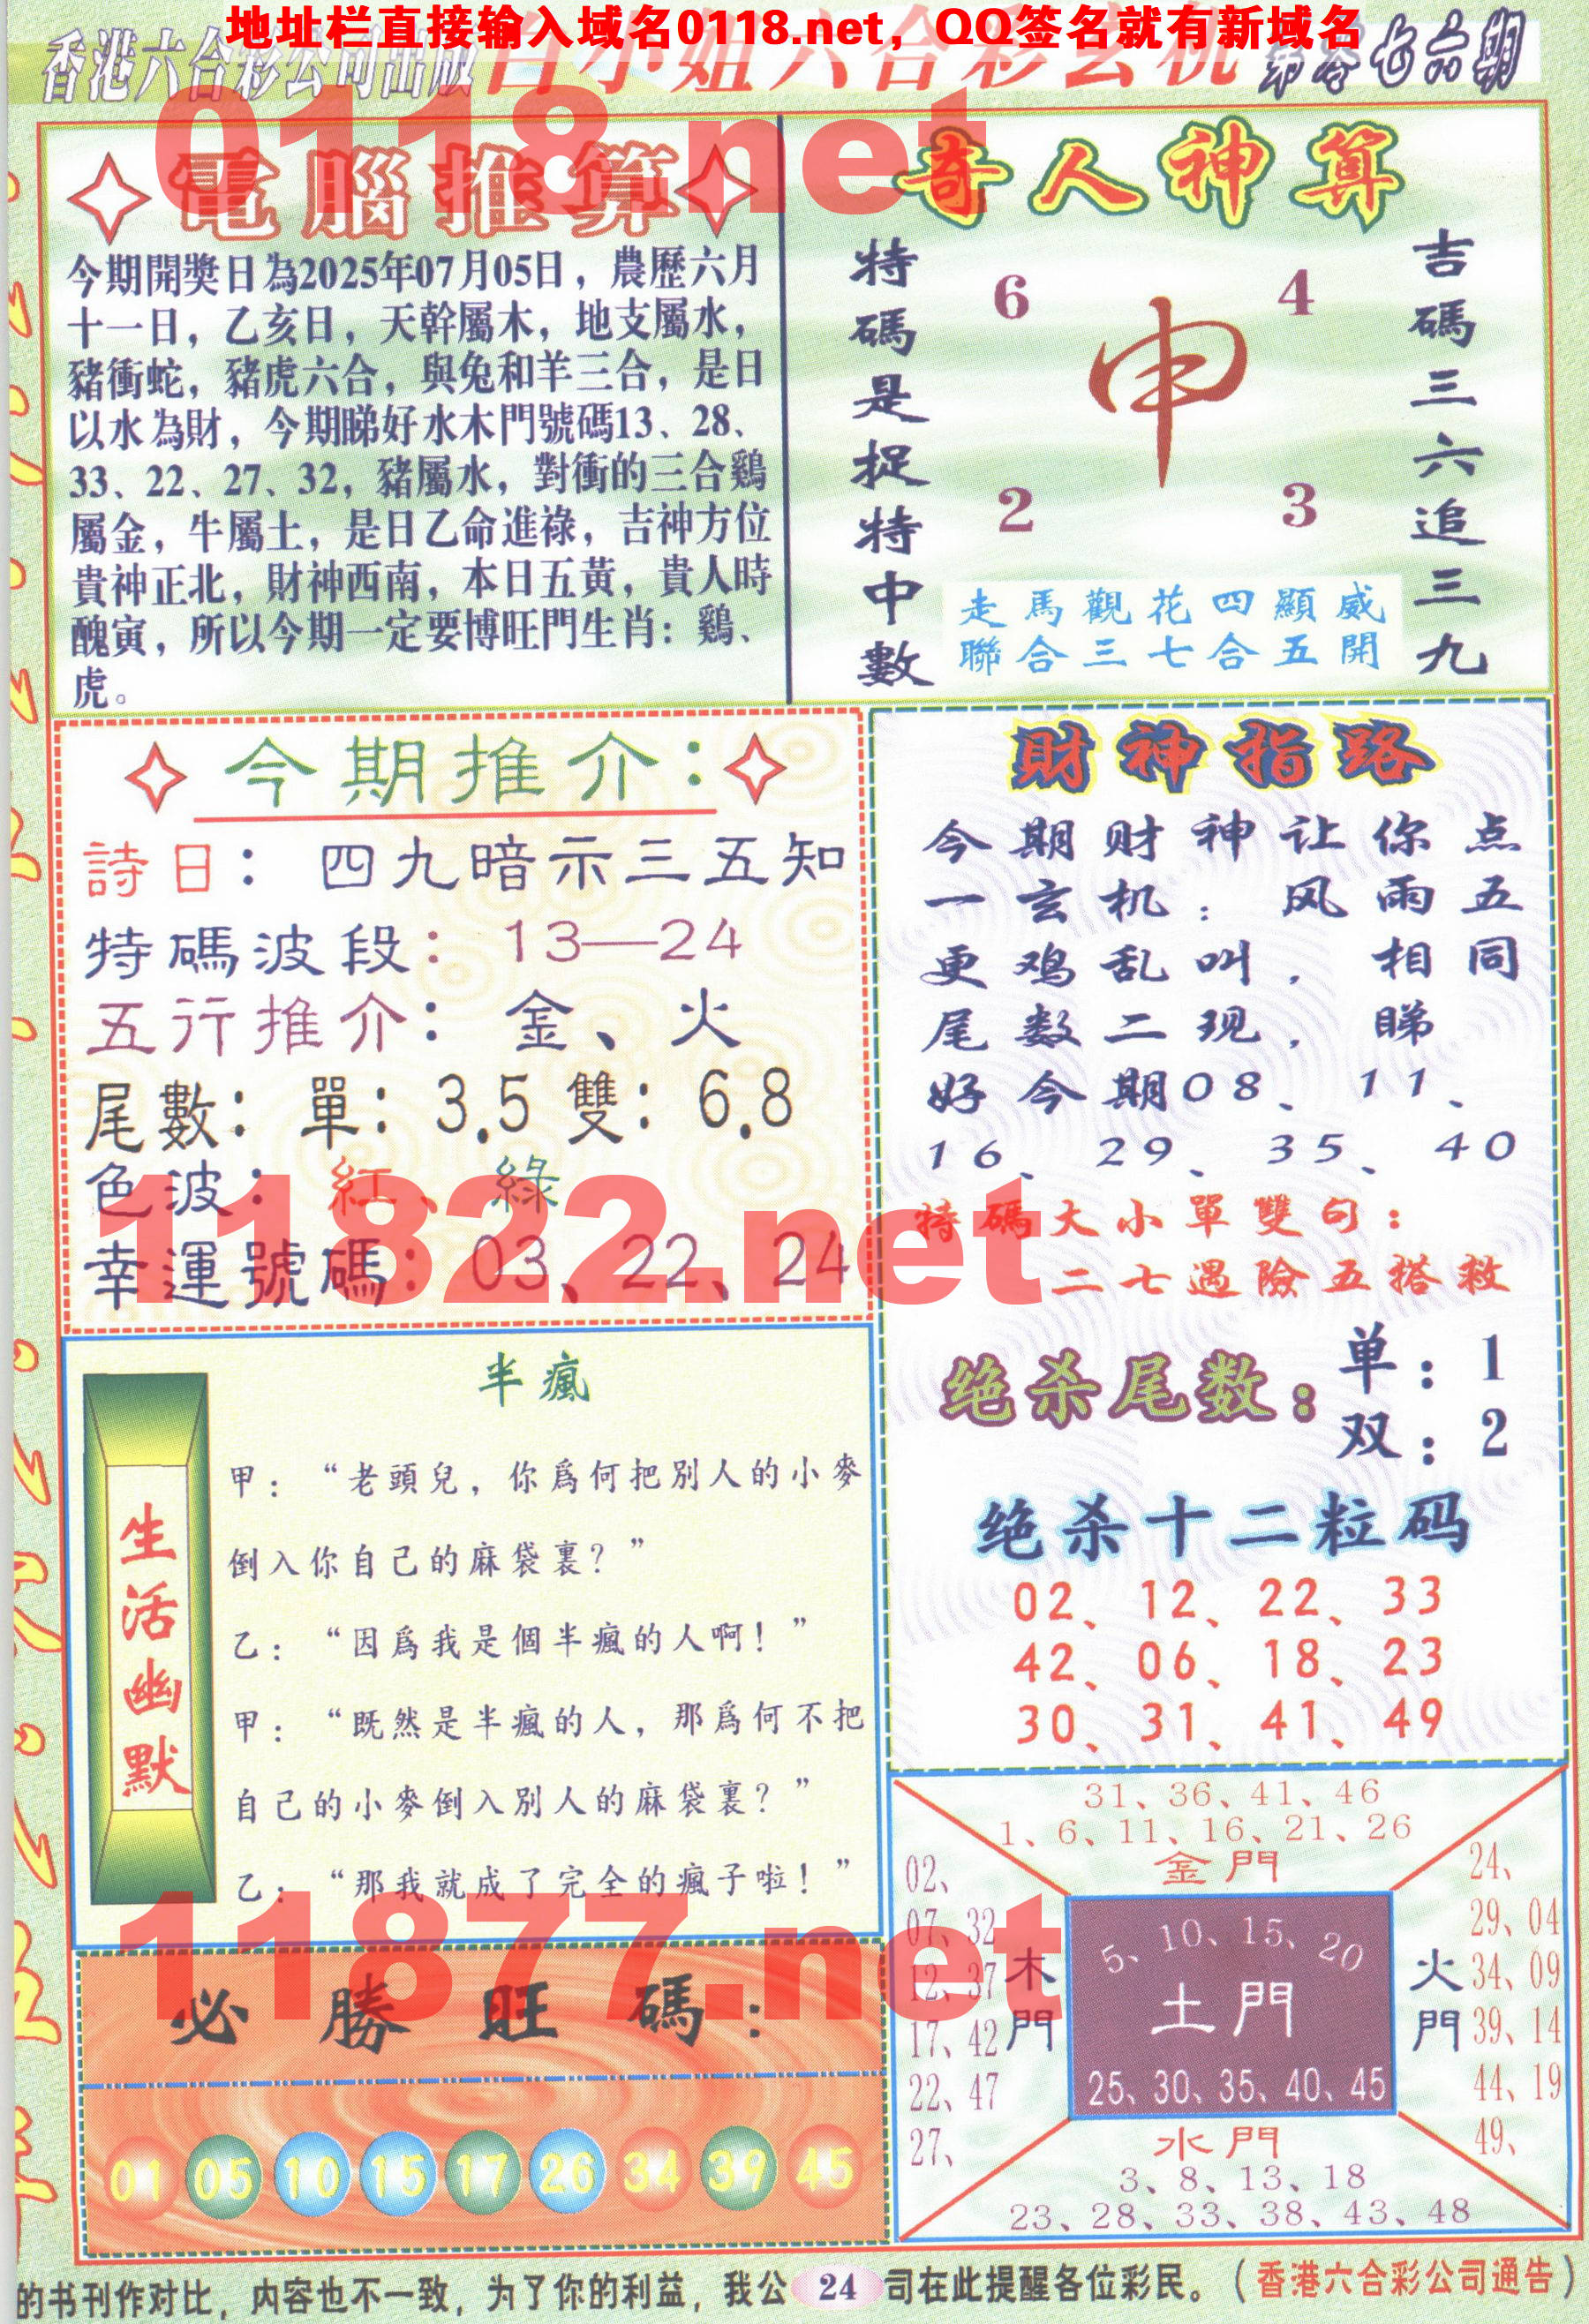 地址栏直接输入域名0118.net，QQ签名就有新域名
香港六合彩公司出版
白小姐六合彩玄机
第零七六期
0118.net
電腦推算
今期開獎日為2025年07月05日，農歷六月
十一日，乙亥日，天幹屬木，地支屬水，
豬衝蛇，豬虎六合，與兔和羊三合，是日
以水為財，今期睇好水木門號碼13、28、
33、22、27、32，豬屬水，對衝的三合鷄
屬金，牛屬土，是日乙命進祿，吉神方位
貴神正北，財神西南，本日五黃，貴人時
醜寅，所以今期一定要博旺門生肖：鷄、
虎。
奇人神算
特碼是捉特中數
6 4
申
2 3
走馬觀花四顯威
聯合三七合五開
吉碼三六追三九
今期推介：
詩日：四九暗示三五知
特碼波段：13—24
五行推介：金、火
尾數：單：3.5 雙：6.8
色波：紅、綠
幸運號碼：03、22、24
11822.net
財神指路
今期财神让你点
一玄机：风雨五
更鸡乱叫，相同
尾数二现，睇
好今期08、11、
16、29、35、40
特碼大小單雙句：
二七遇險五搭救
绝杀尾数：
单：1
双：2
绝杀十二粒码
02、12、22、33
42、06、18、23
30、31、41、49
生活幽默
半瘋
甲：“老頭兒，你爲何把別人的小麥
倒入你自己的麻袋裏？”
乙：“因爲我是個半瘋的人啊！”
甲：“既然是半瘋的人，那爲何不把
自己的小麥倒入別人的麻袋裏？”
乙：“那我就成了完全的瘋子啦！”
11877.net
必勝旺碼：
01 05 10 15 17 26 34 39 45
31、36、41、46
1、6、11、16、21、26
金門
02、
07、32
12、37
17、42
22、47
27、
木門
5、10、15、20
土門
25、30、35、40、45
火門
24、
29、04
34、09
39、14
44、19
49、
水門
3、8、13、18
23、28、33、38、43、48
的书刊作对比，内容也不一致，为了你的利益，我公 24 司在此提醒各位彩民。（香港六合彩公司通告）